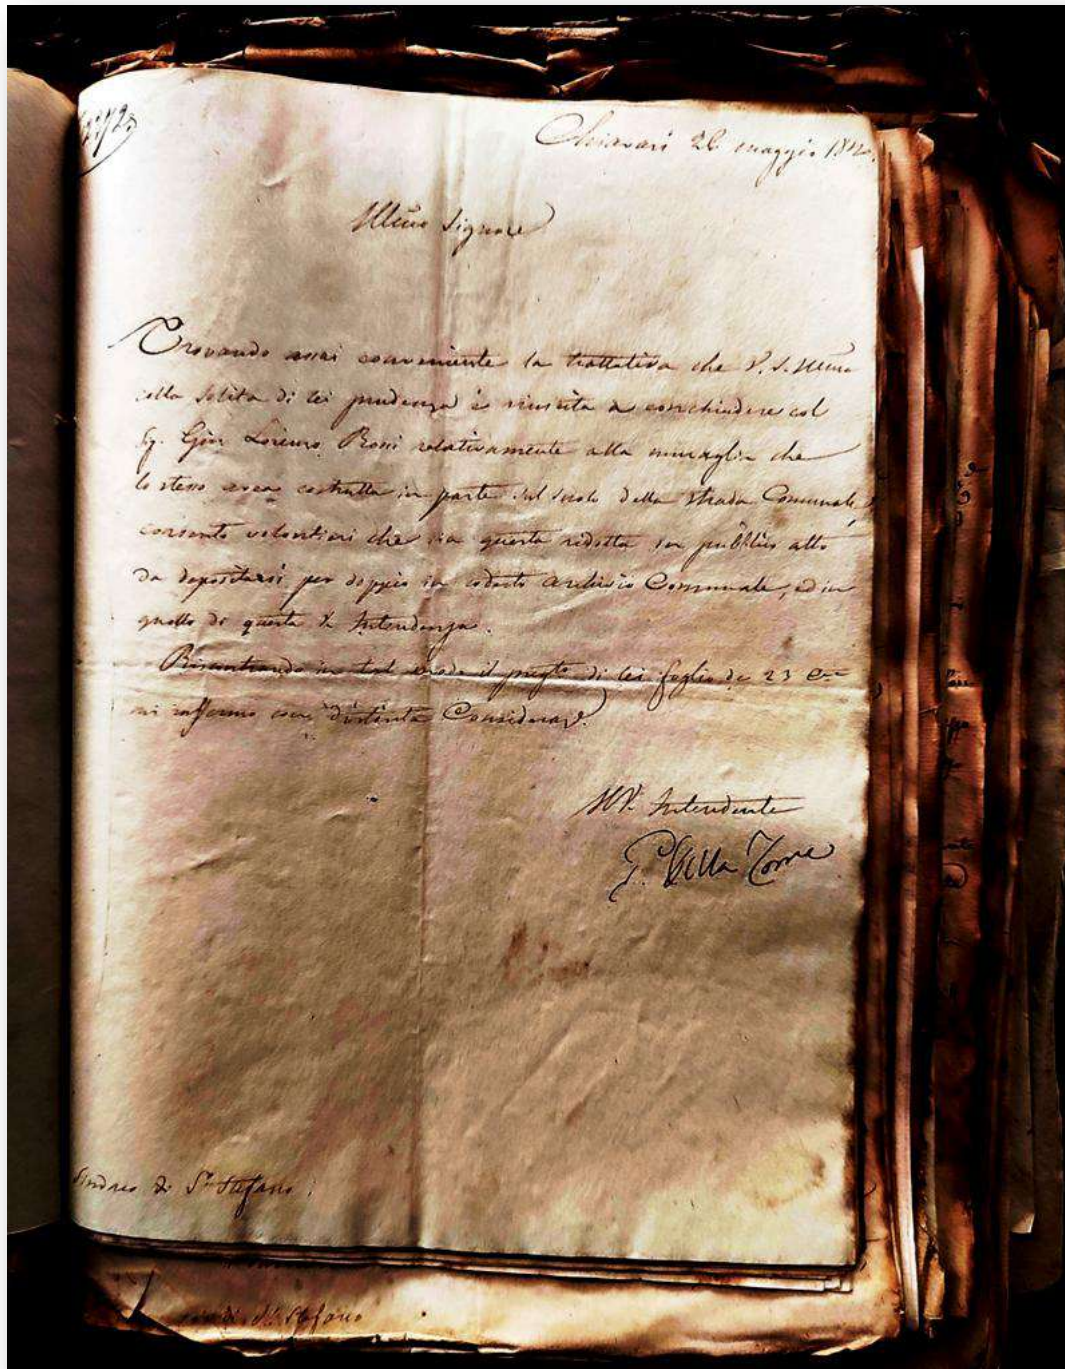 Chiavari 26 maggio
Illmo Signore
Trovando assai conveniente la trattativa che V. S. Illma
colla solita di lei prudenza è riuscita a conchiudere col
Sig. Gio Lorenzo Rossi relativamente alla muraglia che
lo stesso avea costrutta in parte sul suolo della strada Comunale,
consento volontieri che sia questa ridotta in pubblico atto
da depositarsi per doppio in codesto archivio Comunale, ed in
quello di questa R. Intendenza.
Riscontrando in tal modo il pregto di lei foglio de 23 Cte
mi raffermo con distinta Consideraze.
Intendente
P. Della Torre
Sindaco di Sto Stefano
Stefano